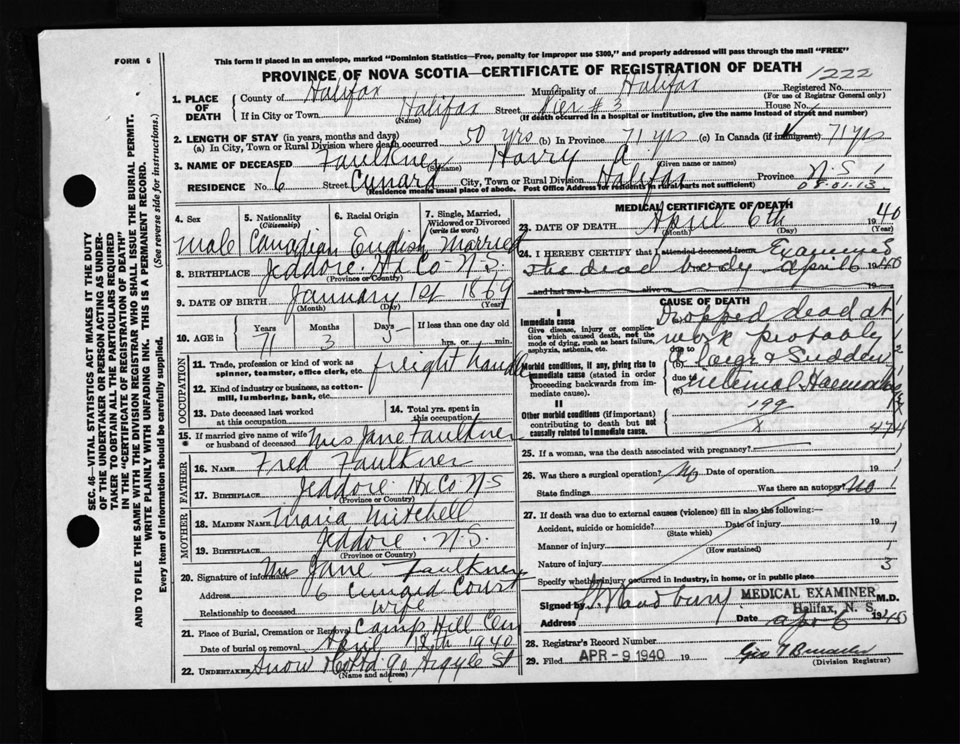 FORM 6
This form if placed in an envelope, marked "Dominion Statistics—Free, penalty for improper use $300," and properly addressed will pass through the mail "FREE"
PROVINCE OF NOVA SCOTIA—CERTIFICATE OF REGISTRATION OF DEATH
1222
1. PLACE OF DEATH County of Halifax Municipality of Halifax Registered No. (For use of Registrar General only)
If in City or Town Halifax (Name) Street Pier #3 House No.
(If death occurred in a hospital or institution, give the name instead of street and number)
2. LENGTH OF STAY (in years, months and days)
(a) In City, Town or Rural Division where death occurred 50 yrs (b) In Province 71 yrs (c) In Canada (if immigrant) 71 yrs
3. NAME OF DECEASED Faulkner (Surname) Harry A (Given name or names)
RESIDENCE No. 6 Street Cunard City, Town or Rural Division Halifax Province N.S.
(Residence means usual place of abode. Post Office Address for residents in rural parts not sufficient)
08.01.13.
4. Sex
male
5. Nationality (Citizenship)
Canadian
6. Racial Origin
English
7. Single, Married, Widowed or Divorced (write the word)
Married
8. BIRTHPLACE Jeddore Hx Co N.S.
(Province or Country)
9. DATE OF BIRTH January 1st 1869
(Month) (Day) (Year)
10. AGE in Years 71 Months 3 Days 5 If less than one day old hrs. or min.
OCCUPATION
11. Trade, profession or kind of work as spinner, teamster, office clerk, etc. freight handler
12. Kind of industry or business, as cotton-mill, lumbering, bank, etc.
13. Date deceased last worked at this occupation
14. Total yrs. spent in this occupation
15. If married give name of wife or husband of deceased Mrs Jane Faulkner
FATHER
16. NAME Fred Faulkner
17. BIRTHPLACE Jeddore Hx Co NS
(Province or Country)
MOTHER
18. MAIDEN NAME Maria Mitchell
19. BIRTHPLACE Jeddore N.S.
(Province or Country)
20. Signature of informant Mrs Jane Faulkner
Address 6 Cunard Court
Relationship to deceased wife
21. Place of Burial, Cremation or Removal Camp Hill Cem
Date of burial or removal April 1940
22. UNDERTAKER Snow 90 Argyle St
(Name and address)
MEDICAL CERTIFICATE OF DEATH
23. DATE OF DEATH April 6th 1940
(Month) (Day) (Year)
24. I HEREBY CERTIFY that I attended deceased from Examined
the dead body April 6 1940
and last saw h alive on
CAUSE OF DEATH
I
Immediate cause
Give disease, injury or complication which caused death, not the mode of dying, such as heart failure, asphyxia, asthenia, etc.
Dropped dead at
work probably
due to
Morbid conditions, if any, giving rise to immediate cause (stated in order proceeding backwards from immediate cause).
(b) a large & Sudden
due to
(c) internal Haemorrhage
II
Other morbid conditions (if important) contributing to death but not causally related to immediate cause.
199
x
474
25. If a woman, was the death associated with pregnancy?
26. Was there a surgical operation? No Date of operation 19
State findings Was there an autopsy? No
27. If death was due to external causes (violence) fill in also the following:—
Accident, suicide or homicide? (State which) Date of injury 19
Manner of injury (How sustained)
Nature of injury
3
Specify whether injury occurred in industry, in home, or in public place
Signed by MEDICAL EXAMINER M.D.
Halifax, N. S.
Address Date apr 6 1940
28. Registrar's Record Number
29. Filed APR - 9 1940 19
(Division Registrar)
SEC. 46—VITAL STATISTICS ACT MAKES IT THE DUTY
OF THE UNDERTAKER OR PERSON ACTING AS UNDER-
TAKER TO OBTAIN ALL THE PARTICULARS REQUIRED
IN THE "CERTIFICATE OF REGISTRATION OF DEATH"
AND TO FILE THE SAME WITH THE DIVISION REGISTRAR WHO SHALL ISSUE THE BURIAL PERMIT.
WRITE PLAINLY WITH UNFADING INK. THIS IS A PERMANENT RECORD.
Every item of Information should be carefully supplied. (See reverse side for instructions.)